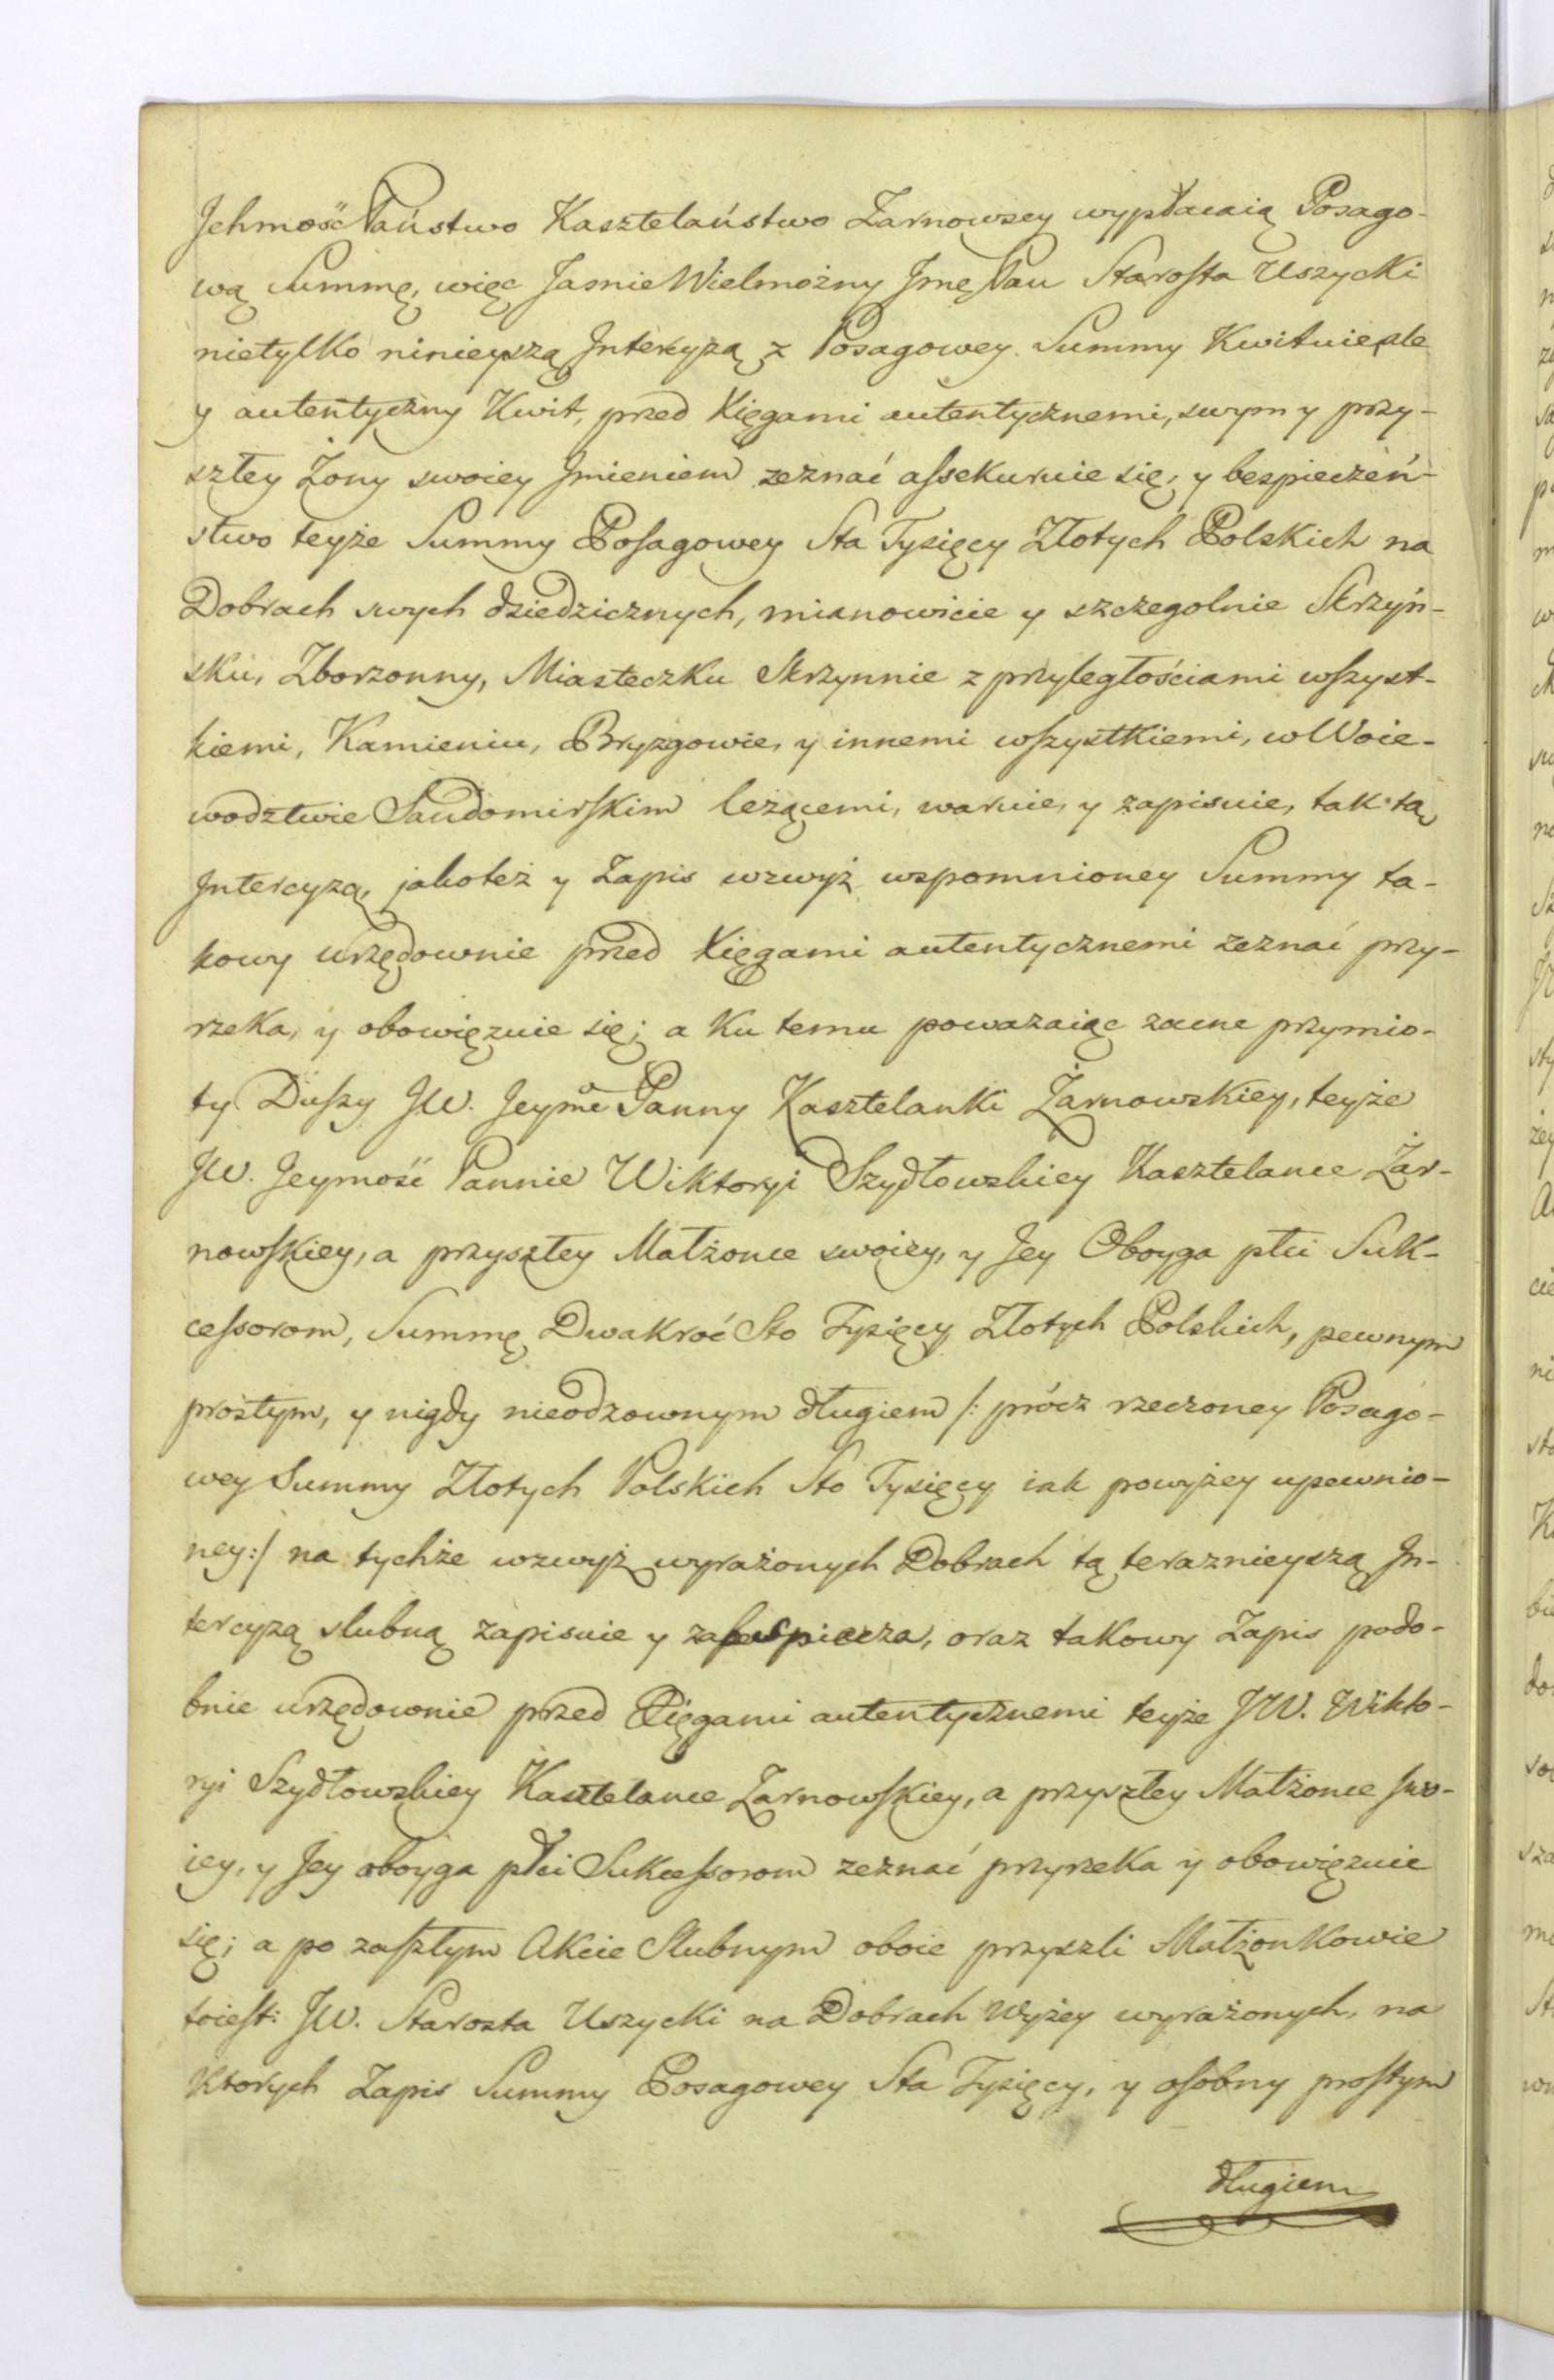 Jchmość Państwo Kasztelaństwo Zarnowscy wypłacaią Posago-
wą Summę, więc Jasnie Wielmożny Jmę Pan Starosta Uszycki
nietylko ninieyszą Intercyzą z Posagowey Summy Kwituie, ale
y autentyczny Kwit, przed Xięgami autentycznemi, swym y przy-
szłey Żony swoiey Jmieniem zeznać assekuruie się, y bezpieczeń-
stwo teyże Summy Posagowey Sta Tysięcy Złotych Polskich na
Dobrach swych dziedzicznych, mianowicie y szczegolnie Skrzyń-
sku, Zborzonny, Miasteczku Skrzynnie z przyległościami wszyst-
kiemi, Kamieniu, Bryzgowie, y innemi wszystkiemi, w Woie-
wodztwie Sandomirskim leżącemi, waruie, y zapisuie, tak tą
Intercyzą, jakoteż y Zapis wzwyż wspomnioney Summy ta-
kowy urzędownie przed Xięgami autentycznemi zeznać przy-
rzeka, y obowięzuie się; a ku temu poważaiąc zacne przymio-
ty Duszy JW. Jeyme Panny Kasztelanki Żarnowskiey, teyże
JW. Jeymość Pannie Wiktoryi Szydłowskiey Kasztelance Żar-
nowskiey, a przyszłey Małżonce swoiey, y Jey Oboyga płci Suk-
cessorom, Summę Dwakroć Sto Tysięcy Złotych Polskich, pewnym
prostym, y nigdy nieodzownym długiem /: prócz rzeczoney Posago-
wey Summy Złotych Polskich Sto Tysięcy iak powyżey upewnio-
ney:/ na tychże wzwyż wyrażonych Dobrach tą teraznieyszą In-
tercyzą slubną zapisuie y zabespiecza, oraz takowy Zapis podo-
bnie urzędownie przed Xięgami autentycznemi teyże JW. Wikto-
ryi Szydłowskiey Kasztelance Zarnowskiey, a przyszłey Małżonce swo-
iey, y Jey oboyga płci Sukcessorom zeznać przyrzeka y obowięzuie
się; a po zaszłym Akcie Slubnym oboie przyszli Małżonkowie
toiest: JW. Starosta Uszycki na Dobrach Wyżey wyrażonych, na
Ktorych Zapis Summy Posagowey Sta Tysięcy, y osobny prostym
długiem